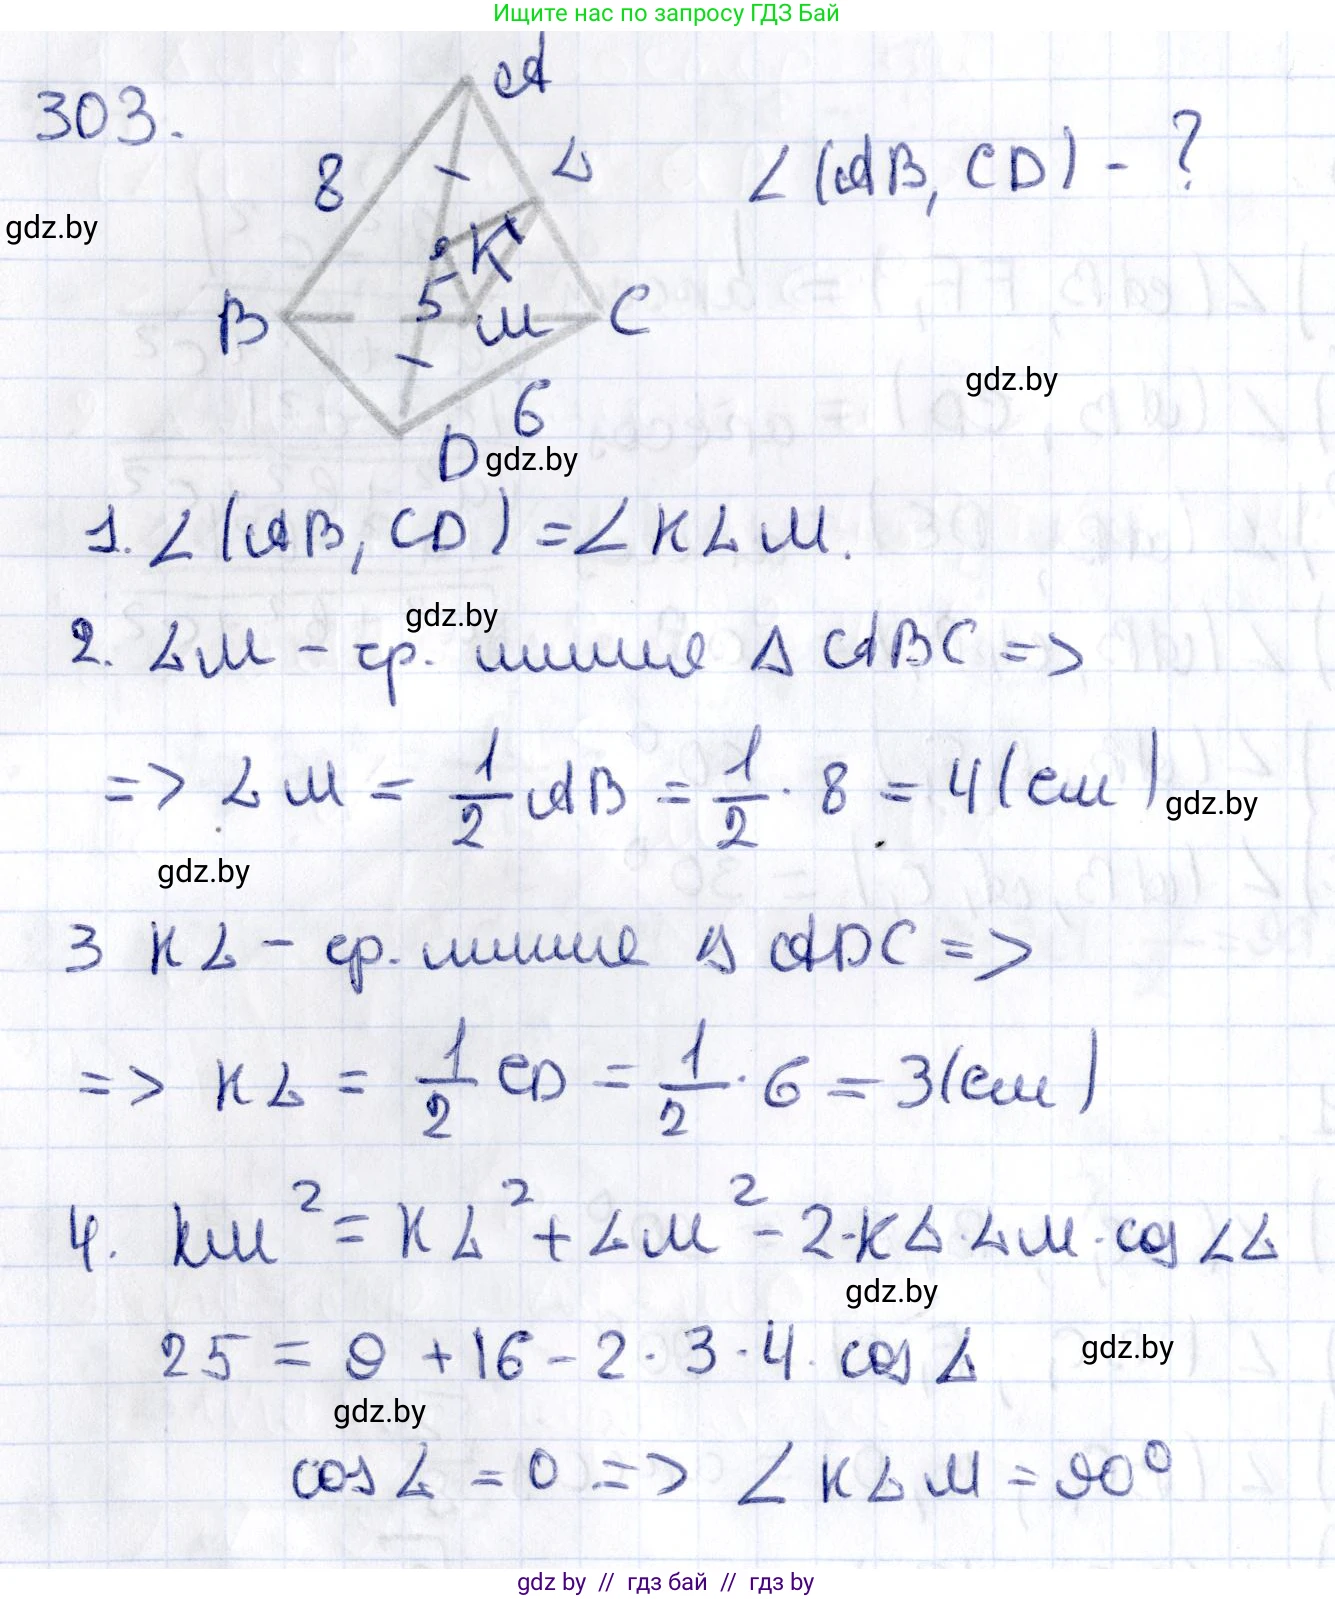 Ищите нас по запросу ГДЗ Бай
303.
A
8
L
∠(AB, CD) - ?
gdz.by
K
5
B
M
C
gdz.by
6
D
gdz.by
1. ∠(AB, CD) = ∠KLM.
gdz.by
2. LM - ср. линия Δ ABC =>
=> LM = 1/2 AB = 1/2 · 8 = 4 (см)
gdz.by
gdz.by
3 KL - ср. линия Δ ADC =>
=> KL = 1/2 CD = 1/2 · 6 = 3 (см)
4. KM² = KL² + LM² - 2·KL·LM·cos ∠L
gdz.by
25 = 9 + 16 - 2·3·4·cos L
gdz.by
gdz.by
cos L = 0 => ∠KLM = 90°
gdz by // гдз бай // гдз by